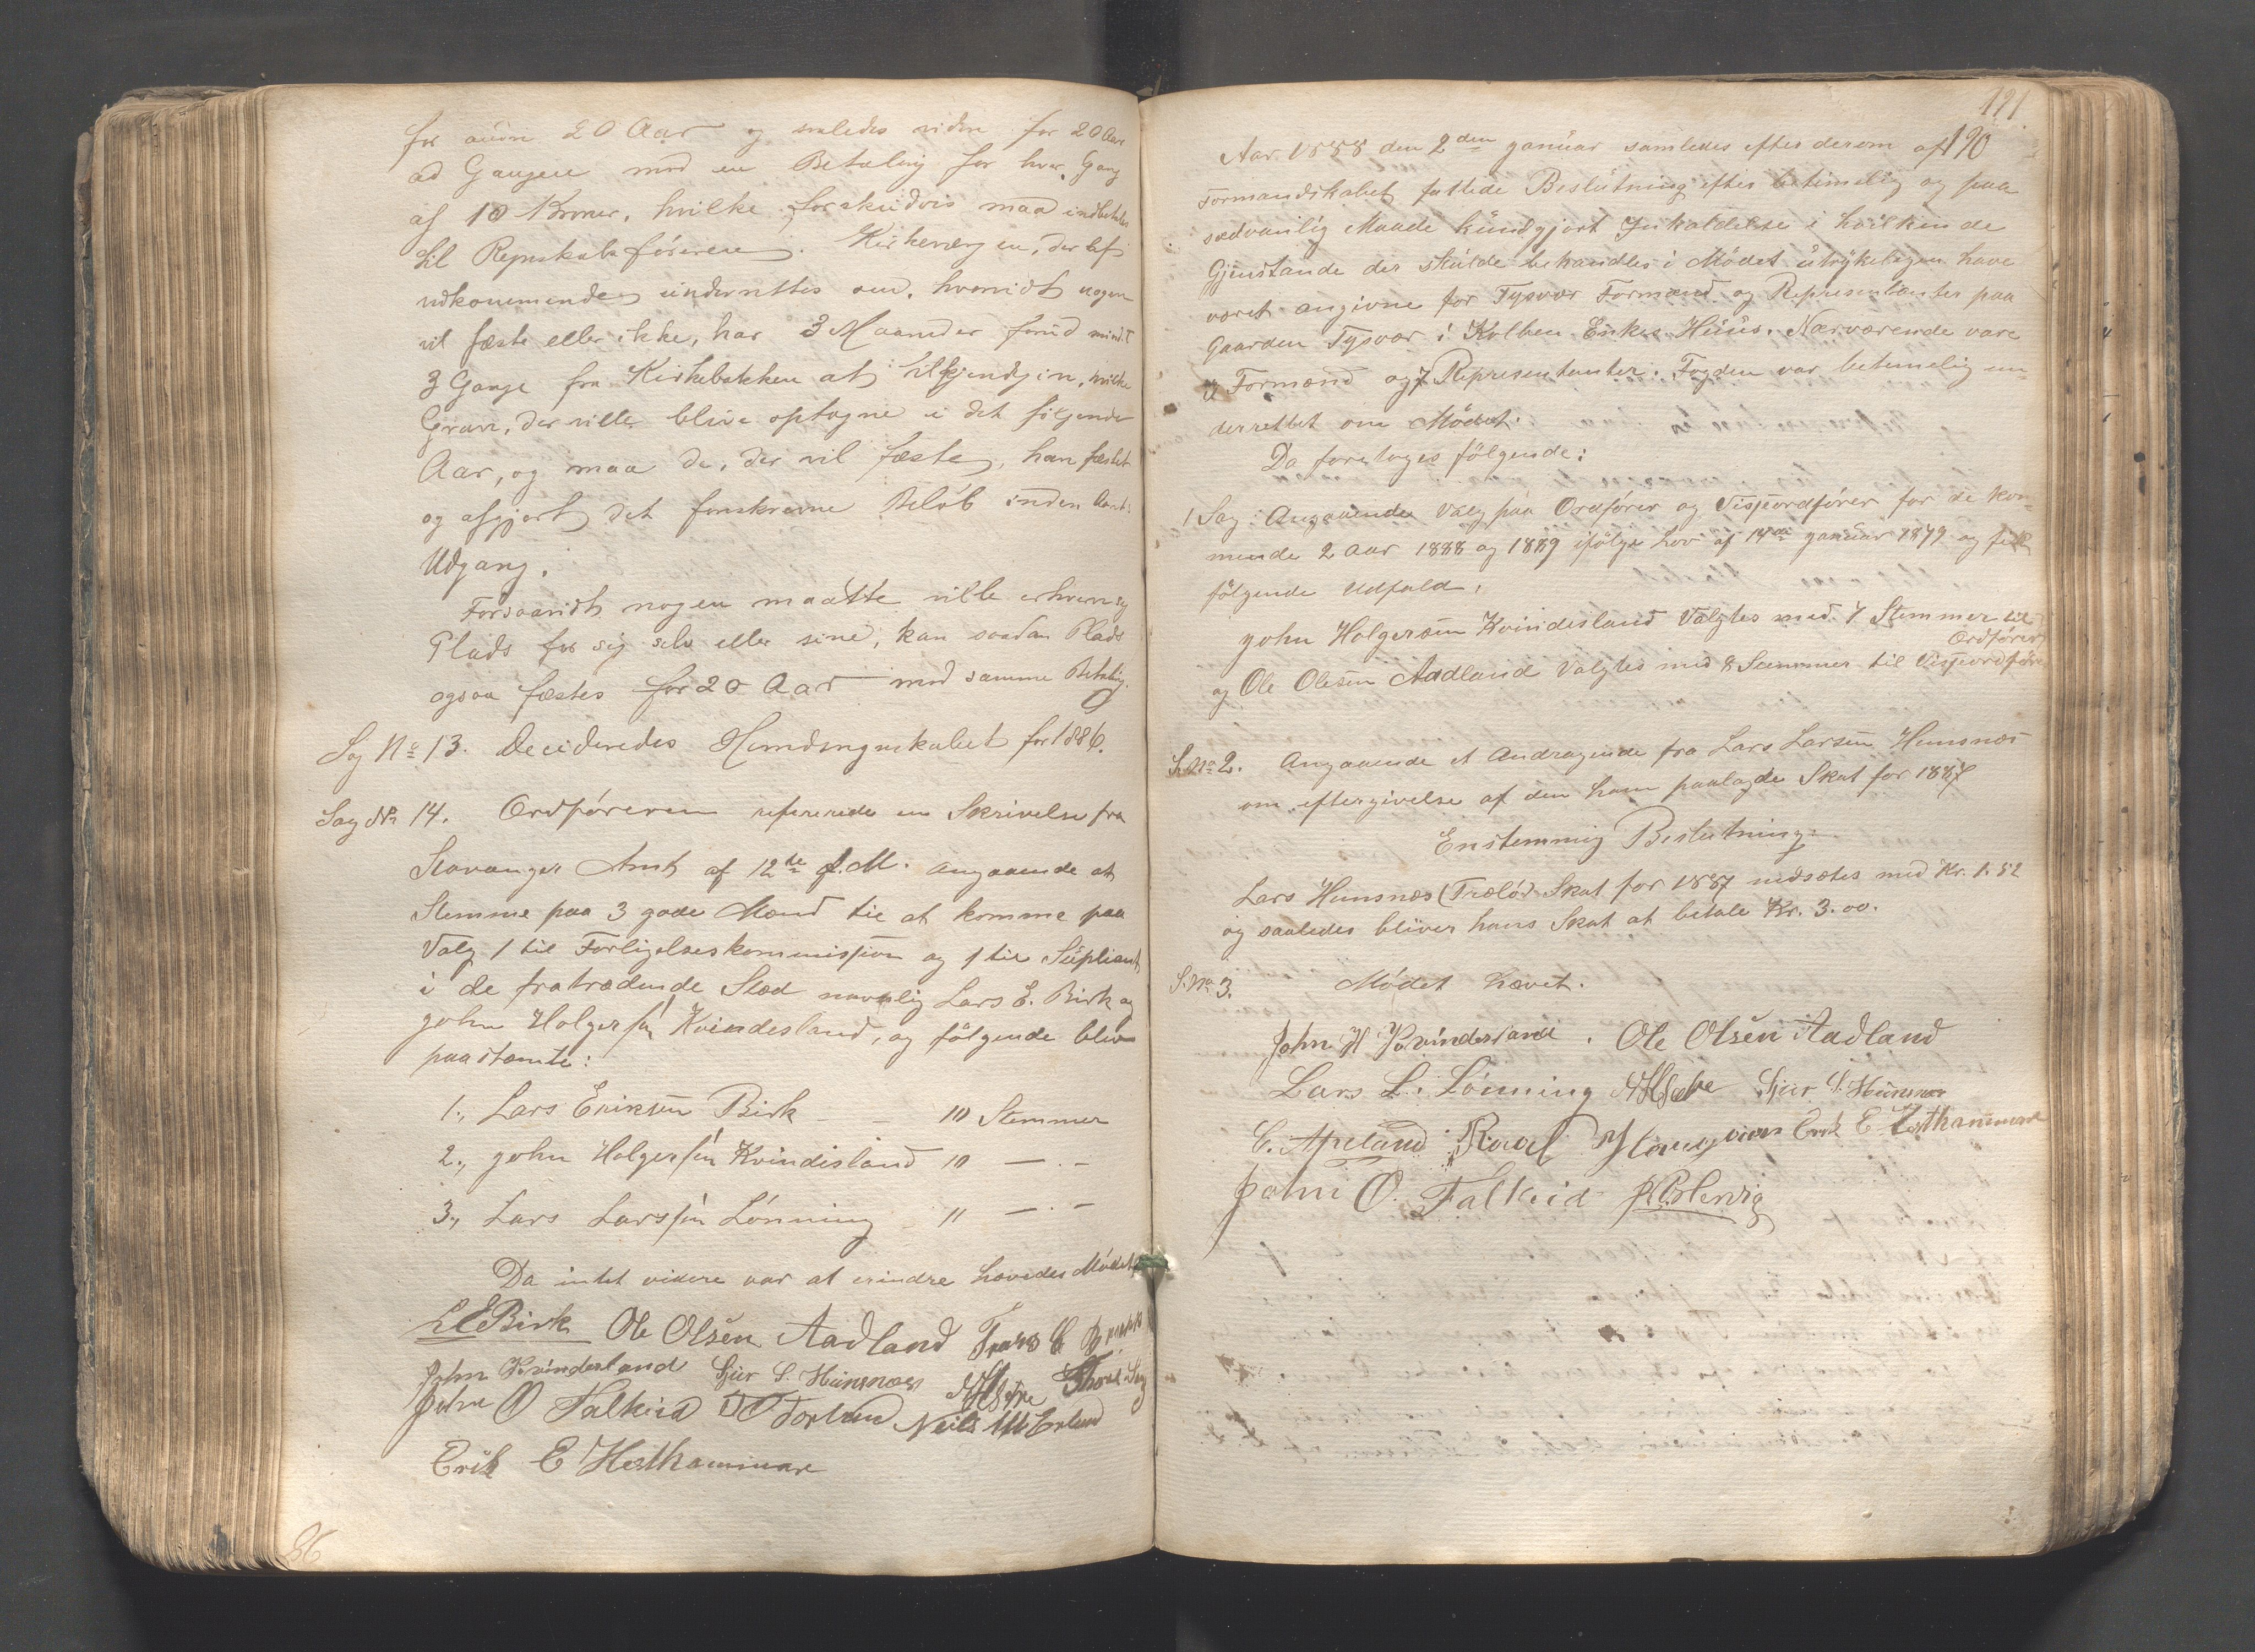 for andre 20 Aar og saaledes videre for 20 Aar
ad Gangen mod en Betaling for hver Gang
af 10 Kroner, hvilke forskudvis maa indbetales
til Regnskabsføreren. Kirkeværgen, der af
vedkommende underrettes om, hvorvidt nogen
vil fæste eller ikke, har 3 Maaneder forud mindst
3 Gange fra Kirkebakken at tilkjendegive, hvilke
Grave, der ville blive optagne i det følgende
Aar, og maa de, der vil fæste, have fæstet
og afgjort det foreskrevne Beløb inden Aarets
Udgang.
Forsaavidt nogen maatte ville erhverve sig
Plads for sig selv eller sine, kan saadan Plads
ogsaa fæstes for 20 Aar mod samme Betaling.
Sag No 13. Decideredes Herredsregnskabet for 1886.
Sag No 14. Ordføreren refererede en Skrivelse fra
Stavanger Amt af 12te f.M. angaaende at
Stemme paa 3 gode Mænd til at komme paa
Valg 1 til Forligelseskommission og 1 til Supliant
i de fratrædende Sted navnlig Lars E. Birk og
John Holgersøn Kvindesland, og følgende blev
paastemte:
1., Lars Eriksen Birk — 10 Stemmer
2., John Holgersøn Kvindisland 10 — . —
3., Lars Larssøn Lønning 11 — . —
Da intet videre var at erindre hævedes Mødet
L E Birk Ole Olsen Aadland
John Kvindesland Sjur S. Hunsnæs
John O Falkeid
Erik E Hesthammar
191
Aar 1888 den 2den januar samledes efter derom af 190
Formandskabet fattede Beslutning efter betimelig og paa
sædvanlig Maade kundgjort Inkaldelse i hvilken de
Gjenstande der skulde behandles i Mødet utrykeligen have
været angivne for Tysvær Formænd og Representanter paa
Gaarden Tysvær i Kolben Enkes Huus. Nærværende vare
Formænd og 7 Representanter. Fogden var betimelig un-
derrettet om Mødet.
Da foretoges følgende:
1 Sag. Angaaende Valg paa Ordfører og Visseordfører for de kom-
mende 2 Aar 1888 og 1889 ifølge Lov af 14de januar 1879 og fik
følgende Udfald.
John Holgersøn Kvindesland Valgtes med 7 Stemmer til
Ordfører
og Ole Olesen Aadland Valgtes med 8 Stemmer til Visseordfører
S. No 2. Angaaende et Andragende fra Lars Larsen Hunsnæs
om eftergivelse af den ham paalagde Skat for 1887
Enstemmig Beslutning:
Lars Hunsnæs (Træle) Skat for 1887 nedsætes med Kr. 1.52
og saaledes bliver hans Skat at betale Kr. 3.00.
S. No 3. Mødet hævet.
John H Kvindesland . Ole Olsen Aadland
Lars L. Lønning Sjur S. Hunsnæs
C. Apeland Erik E Hesthammar
John O. Falkeid